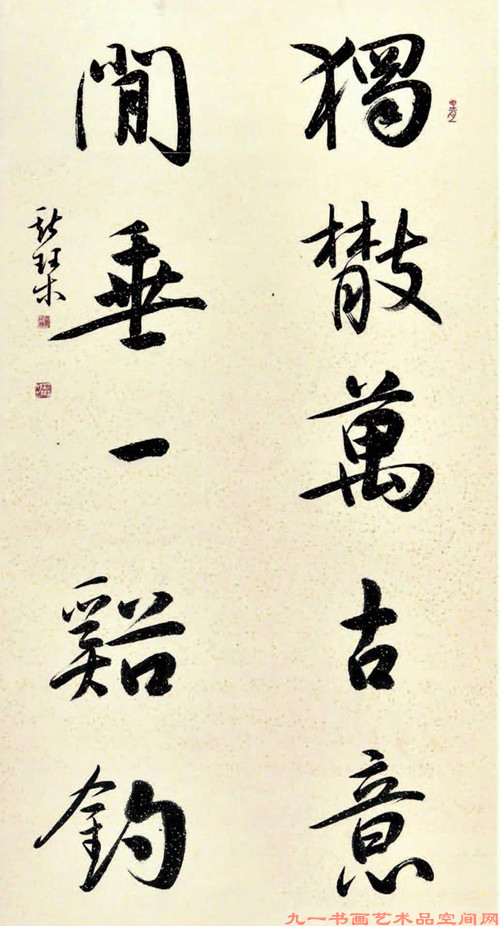 獨散萬古意
閒垂一谿釣
九一书画艺术品空间网